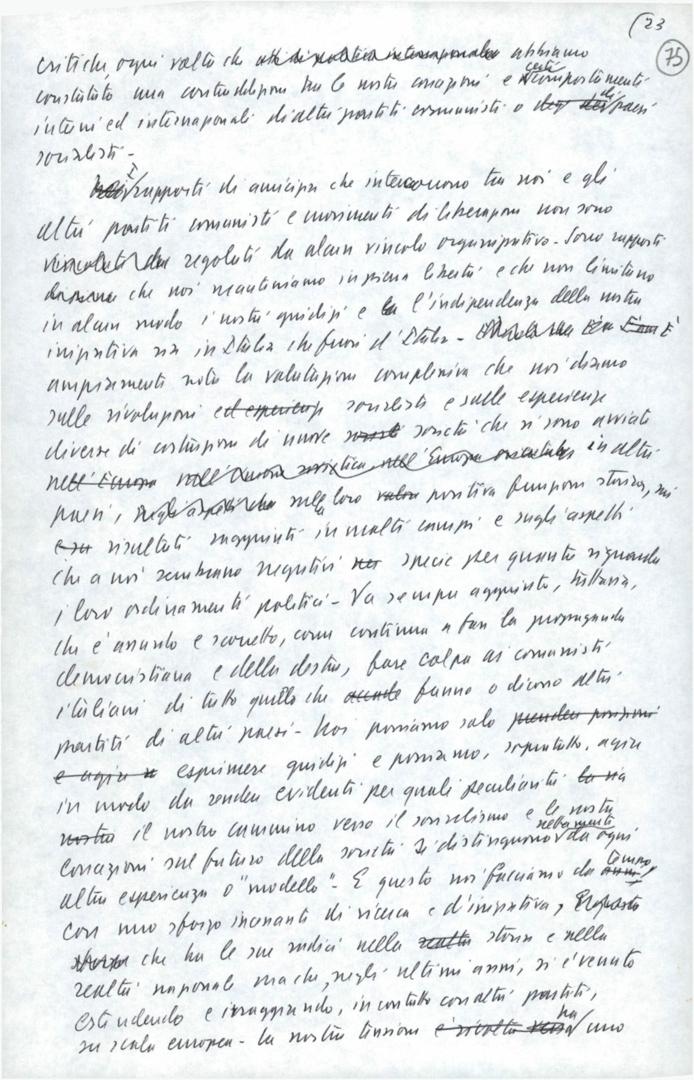 23
75
critiche, ogni volta che atti di politica internazionale abbiamo
constatato una contraddizione tra le nostre concezioni e certi comportamenti
interni ed internazionali di altri partiti comunisti o di paesi
socialisti -
I rapporti di amicizia che intercorrono tra noi e gli
altri partiti comunisti e movimenti di liberazione non sono
regolati da alcun vincolo organizzativo - Sono rapporti
che noi manteniamo in piena libertà e che non limitano
in alcun modo i nostri giudizi e l'indipendenza della nostra
iniziativa sia in Italia che fuori d'Italia - È
ampiamente nota la valutazione complessiva che noi diamo
sulle rivoluzioni ed esperienze socialiste e sulle esperienze
diverse di costruzione di nuove società che si sono avviate
nell'Europa nell'Unione sovietica nell'Europa orientale in altri
paesi, sulla loro valore positiva funzione storica, sui
risultati raggiunti in molti campi e sugli aspetti
che a noi sembrano negativi specie per quanto riguarda
i loro ordinamenti politici - Va sempre aggiunto, tuttavia,
che è assurdo e scorretto, come continua a fare la propaganda
democristiana e della destra, fare colpa ai comunisti
italiani di tutto quello che accade fanno o dicono altri
partiti di altri paesi - Noi possiamo solo prendere posizioni
e agire esprimere giudizi e possiamo, soprattutto, agire
in modo da rendere evidenti per quali peculiarità la via
nostra il nostro cammino verso il socialismo e le nostre
concezioni sul futuro della società si distinguono nettamente da ogni
altra esperienza o "modello" - E questo noi facciamo da tempo,
con uno sforzo incessante di ricerca e d'iniziativa,
sforzo che ha le sue radici nella realtà storia e nella
realtà nazionale ma che, negli ultimi anni, si è venuto
estendendo e irraggiando, in contatto con altri partiti,
su scala europea - La nostra tensione è rivolta verso ha uno